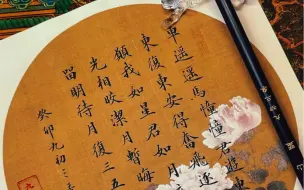 車遥遥馬憧憧君遊
東復東安得奮飛逐
願我如星君如月
光相皎潔月暫晦
留明待月復三五
癸卯九初三